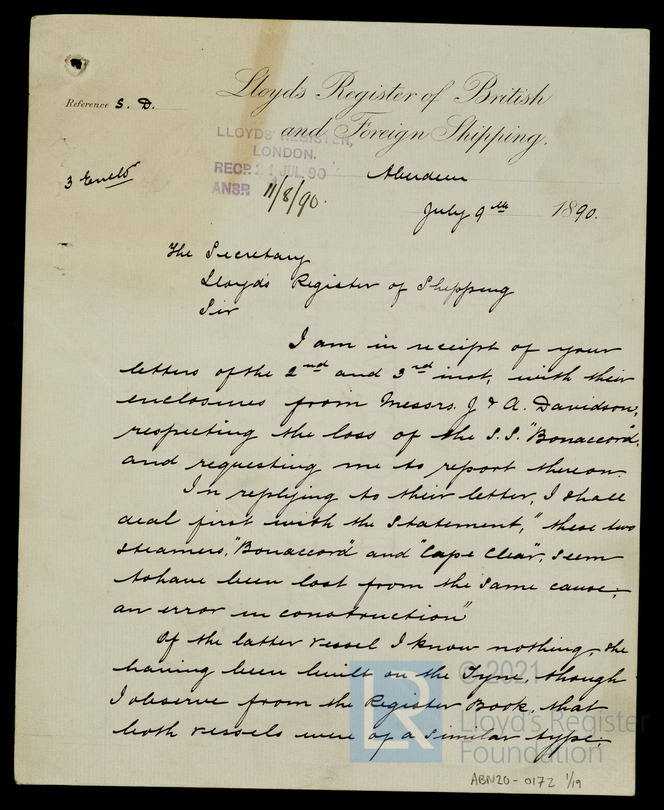 Lloyds Register of British
and Foreign Shipping.
Reference S. D.
LLOYDS REGISTER,
LONDON.
RECP. 21 JUL 90
ANSR 11/8/90.
3 Enclos
Aberdeen
July 9th 1890.
The Secretary
Lloyd's Register of Shipping
Sir
I am in receipt of your
letters of the 2nd and 3rd inst, with their
enclosures from Messrs. J & A. Davidson,
respecting the loss of the S.S. "Bonaccord",
and requesting me to report thereon.
In replying to their letter, I shall
deal first with the statement, "these two
steamers, "Bonaccord" and "Cape Clear", seem
to have been lost from the same cause;
an error in construction"
Of the latter vessel I know nothing, she
having been built on the Tyne, though
I observe from the Register Book, that
both vessels were of a similar type;
LR
© 2021
Lloyd's Register
Foundation
ABN20-0172 1/19